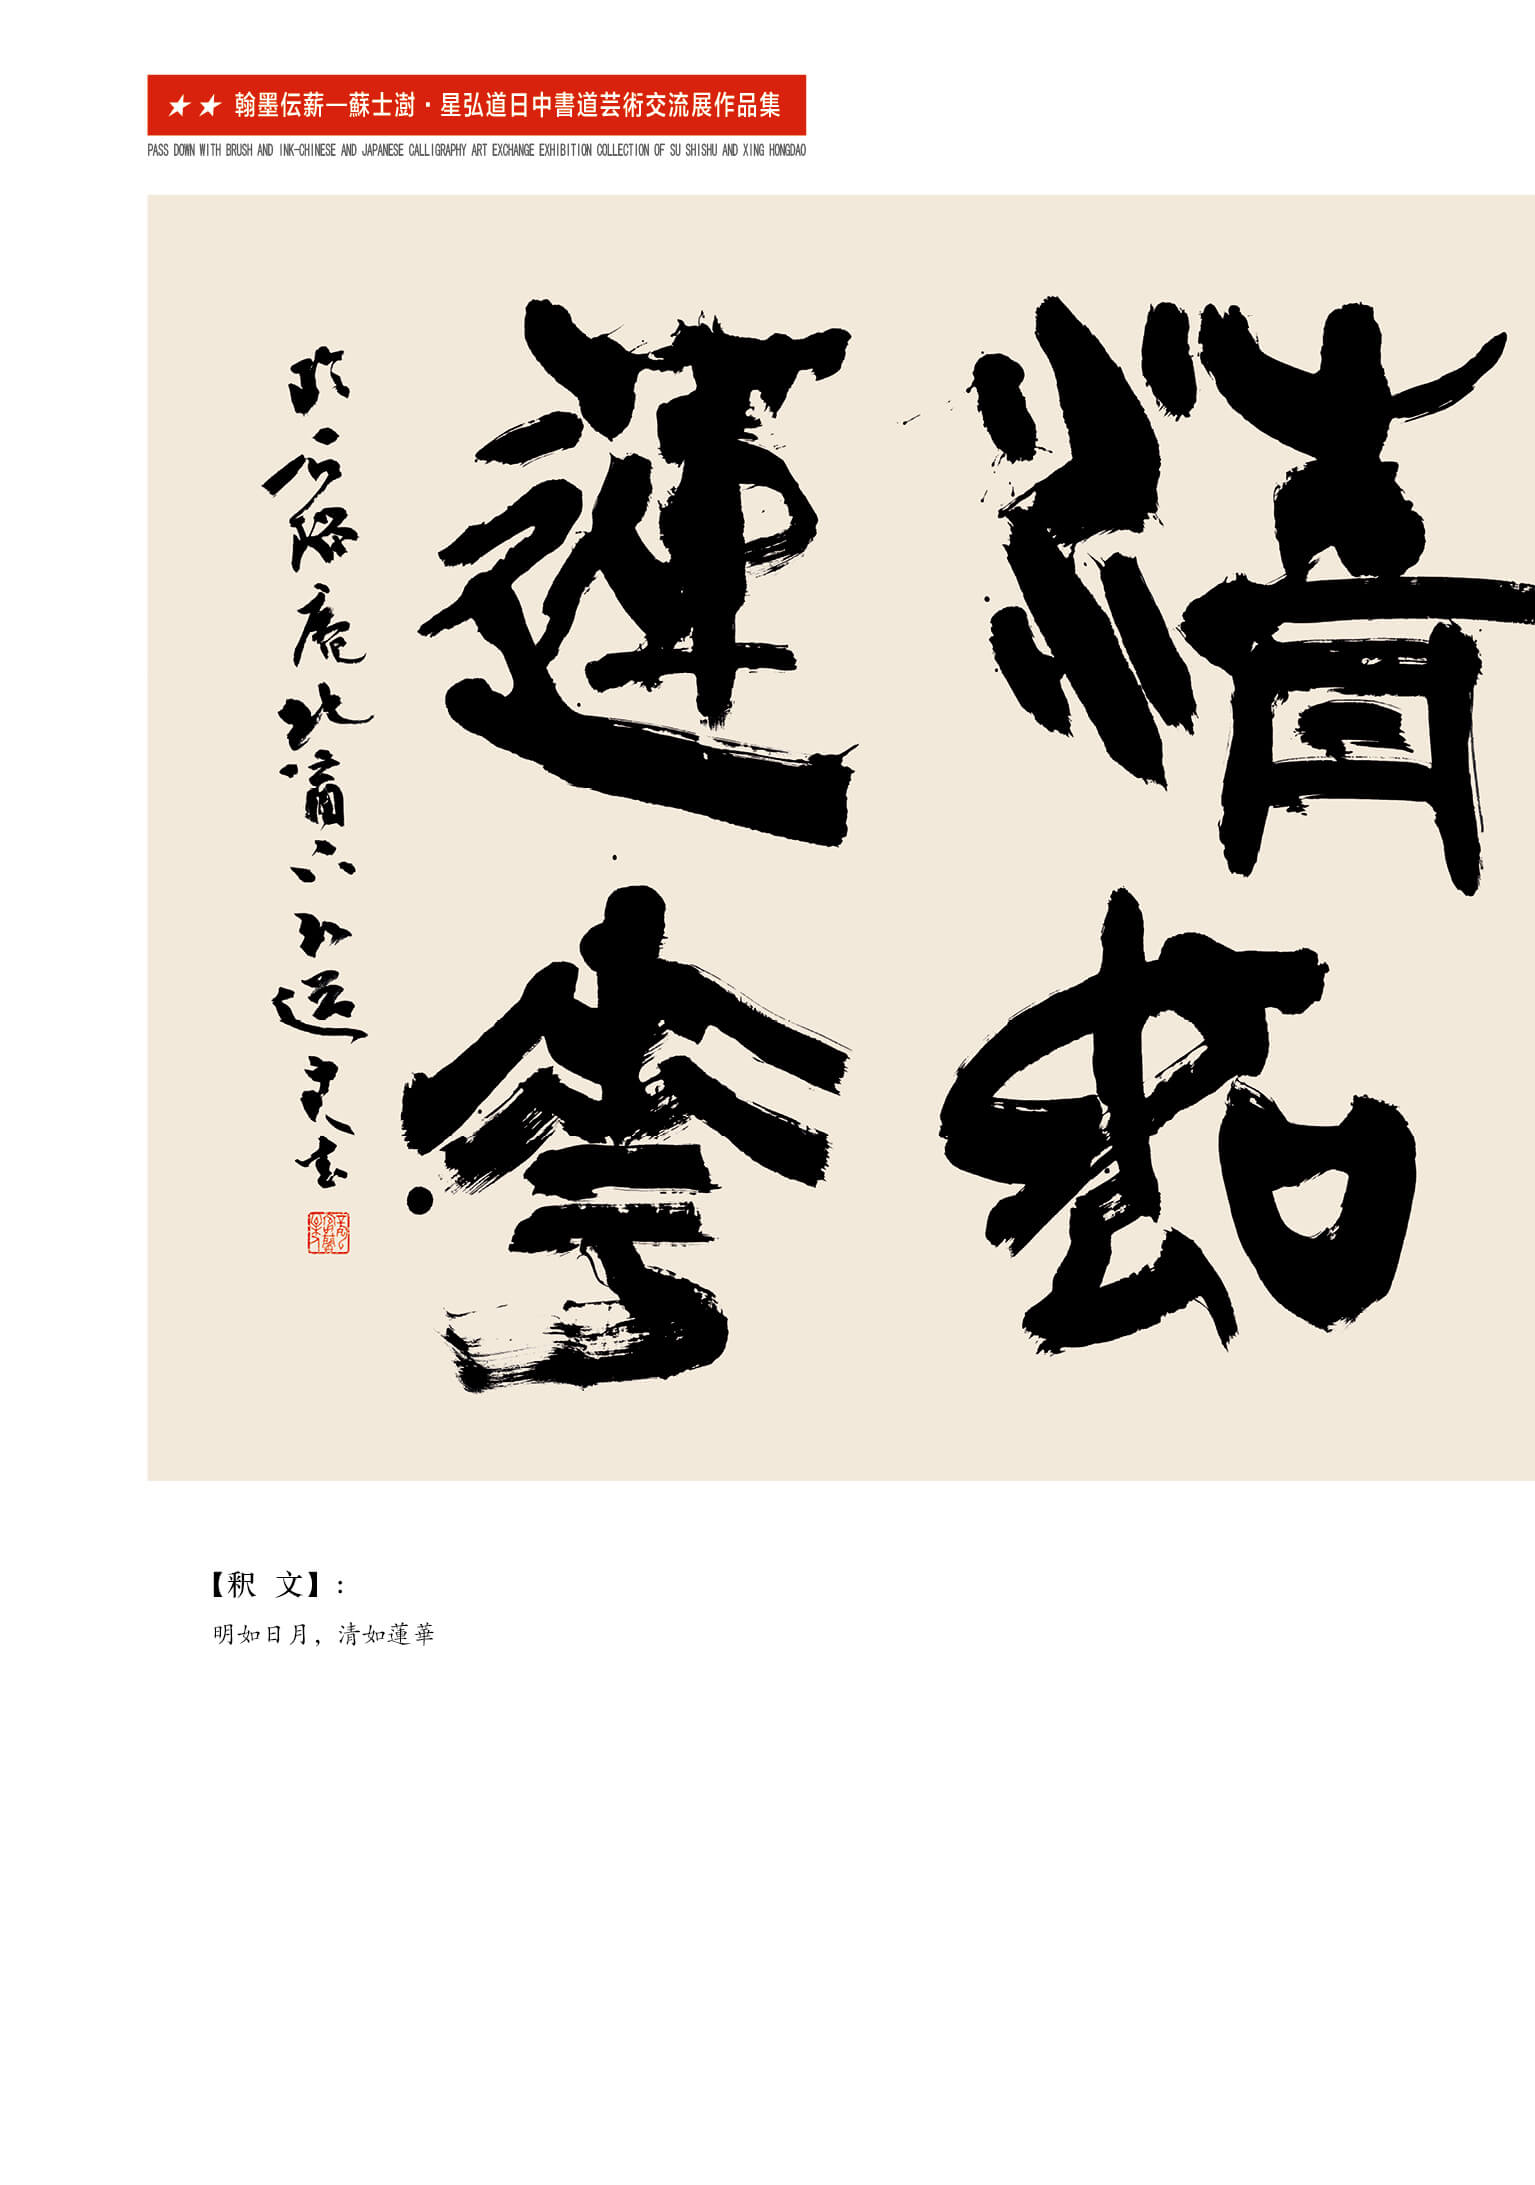 ★★ 翰墨伝薪—蘇士澍·星弘道日中書道芸術交流展作品集
PASS DOWN WITH BRUSH AND INK-CHINESE AND JAPANESE CALLIGRAPHY ART EXCHANGE EXHIBITION COLLECTION OF SU SHISHU AND XING HONGDAO
清如
蓮華
【釈 文】：
明如日月，清如蓮華